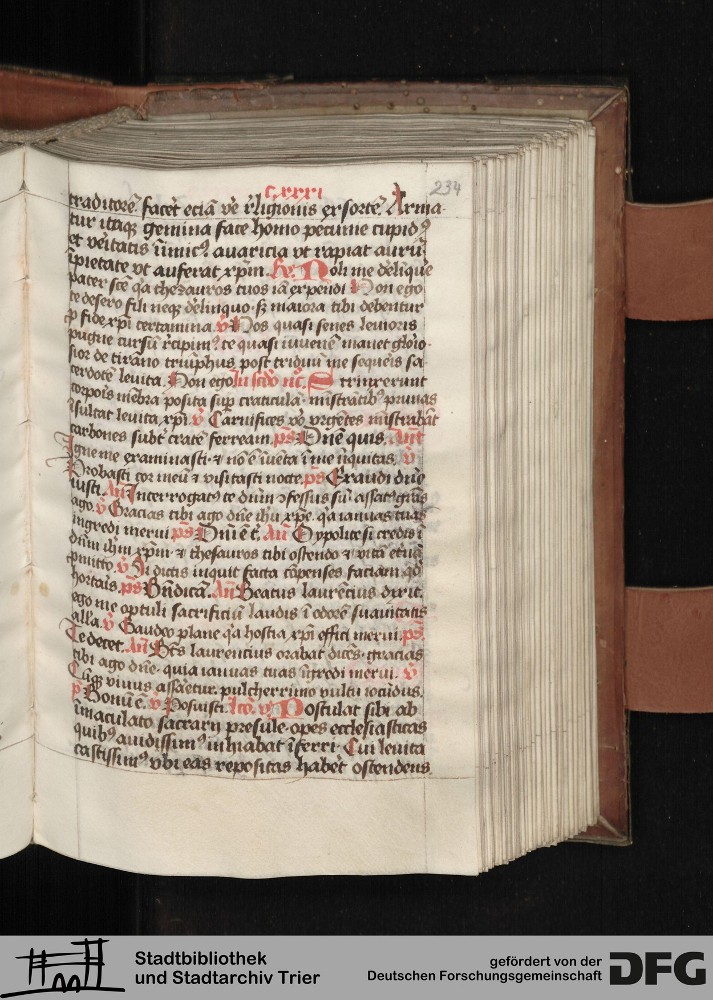 CXXXI
234
traditorē facēt eciā v̄e r̄ligionis exsortē Arma
tur itaqꝫ gemina face homo pecunie cupidꝰ
et v̄eitatis inimicꝰ avaricia vt rapiat aurū
īpietate vt auferat xp̄m. Noli me deliq̄re
pater scē q̄a thezauros tuos iā expendi Non ego
te desero fili neqꝫ delinquo sꝫ maiora tibi debentur
ꝓ fide xp̄i certamina v̄ Nos quasi senes levioris
pugne cursū recipimꝰ te quasi iuvenē manet glōio
sior de tirāno triūphus post triduū me sequeīs sa
cerdotē levita. Non ego In scdo nc̄. Strinxerunt
corpoīs mēbra posita sup̄ craticula ministrātibꝰ prunas
īsultat levita xp̄i v̄ Carnifices vo vrgētes mīstrabāt
carbones subt̄ cratē ferream. ps Dn̄e quis. Ant
Igne me examinasti et nō ē iuēta ī me iniquitas. v̄
Probasti cor meū et visitasti nocte ps Exaudi dn̄e
iusti. An̄ Interrogatꝰ te dnm ꝯfessus sū assatꝰ grās
ago. v̄ Gracias tibi ago dn̄e ih̄u xp̄e. q̄a ianuas tuas
ingredi merui ps Dn̄i ē t̄. An̄ Ypolite si credis ī
dnm ih̄m xp̄m et thesauros tibi ostendo et vitā etn̄ā
ꝓmitto v̄ In dictis inquit facta cōpenses faciam qd̄
hortaīs. ps Bn̄dicā. An̄ Beatus laurēcius dixit.
ego me optuli sacrificiū laudis ī odorē suavitatis
all̄a. v̄ Gaudeo plane q̄a hostia xp̄i effici merui. ps
Te decet. An̄ Bt̄s laurencius orabat dicēs gracias
tibi ago dn̄e quia ianuas tuas īgredi merui. v̄
Cūqꝫ vivus assaretur. pulcherrimo vultu iocūdus.
p Bonū ē. v̄ Posuisti. Postulat sibi ab
īmaculato sacrarii presule opes ecclesiasticas
quibꝰ avidissimꝰ inhiabat īferri. Cui levita
castissimꝰ vbi eas repositas habēt ostendens.
Stadtbibliothek
und Stadtarchiv Trier
gefördert von der
Deutschen Forschungsgemeinschaft
DFG